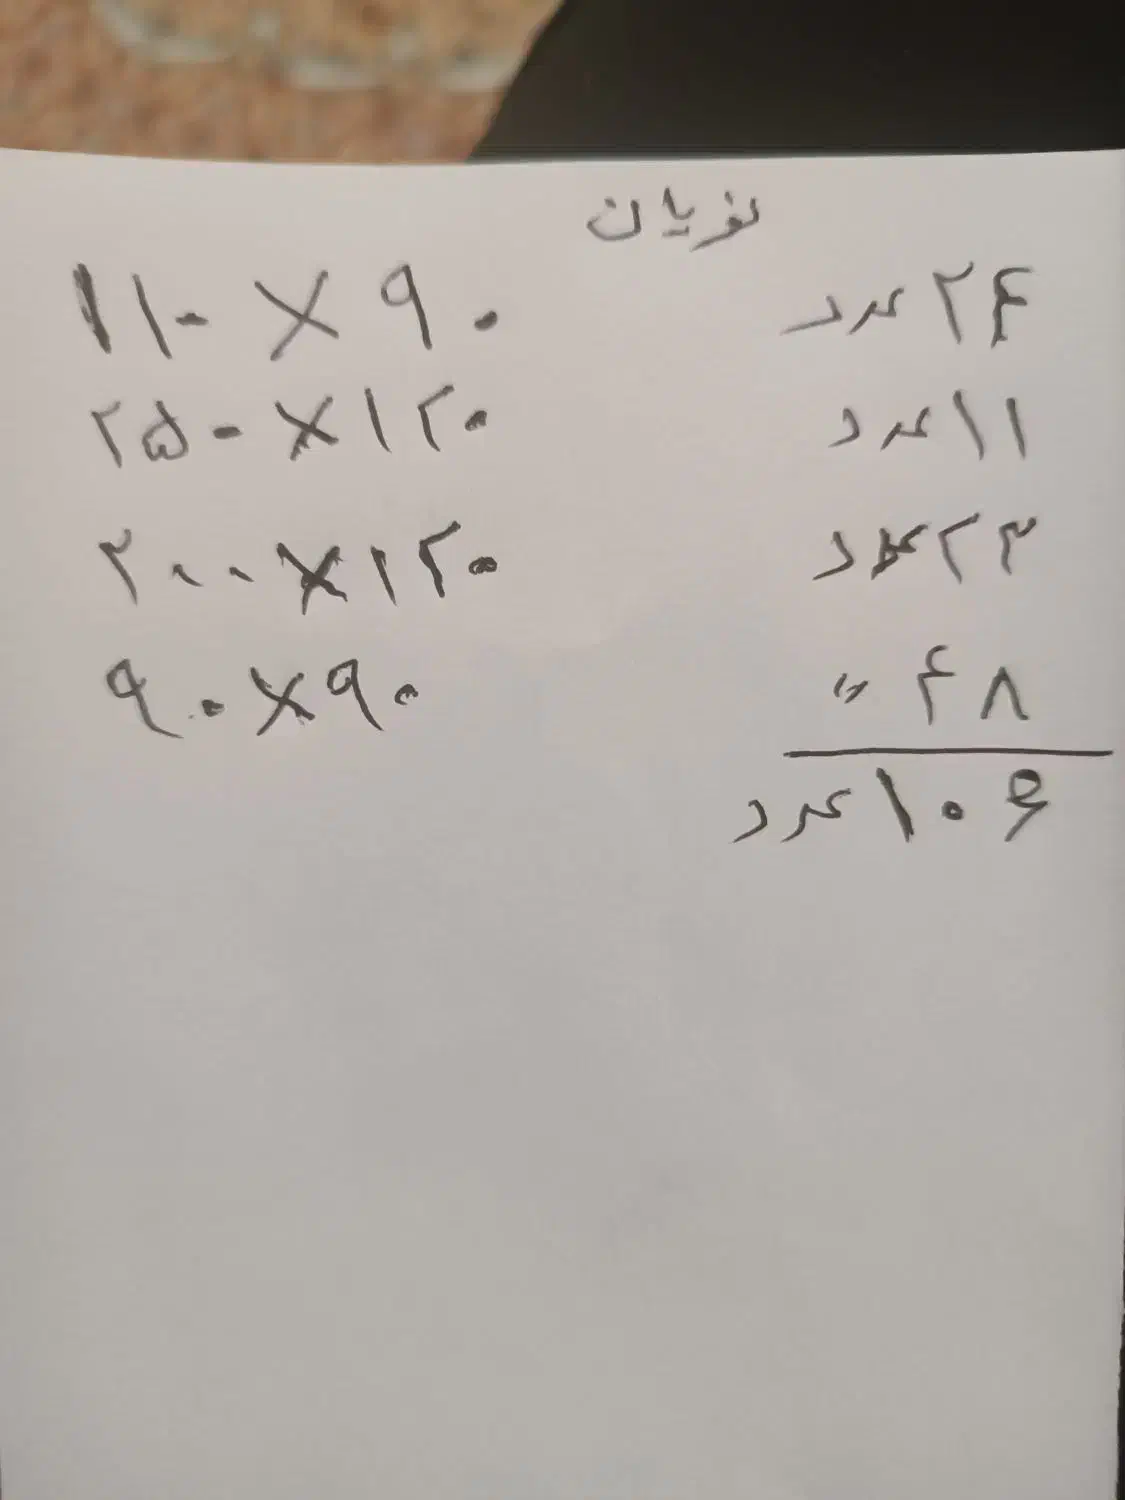 نویان
۲۴ عدد ۱۱۰ × ۹۰
۱۱ عدد ۲۵۰ × ۱۲۰
۲۳ عدد ۲۰۰ × ۱۲۰
۴۸ " ۹۰ × ۹۰
۱۰۶ عدد